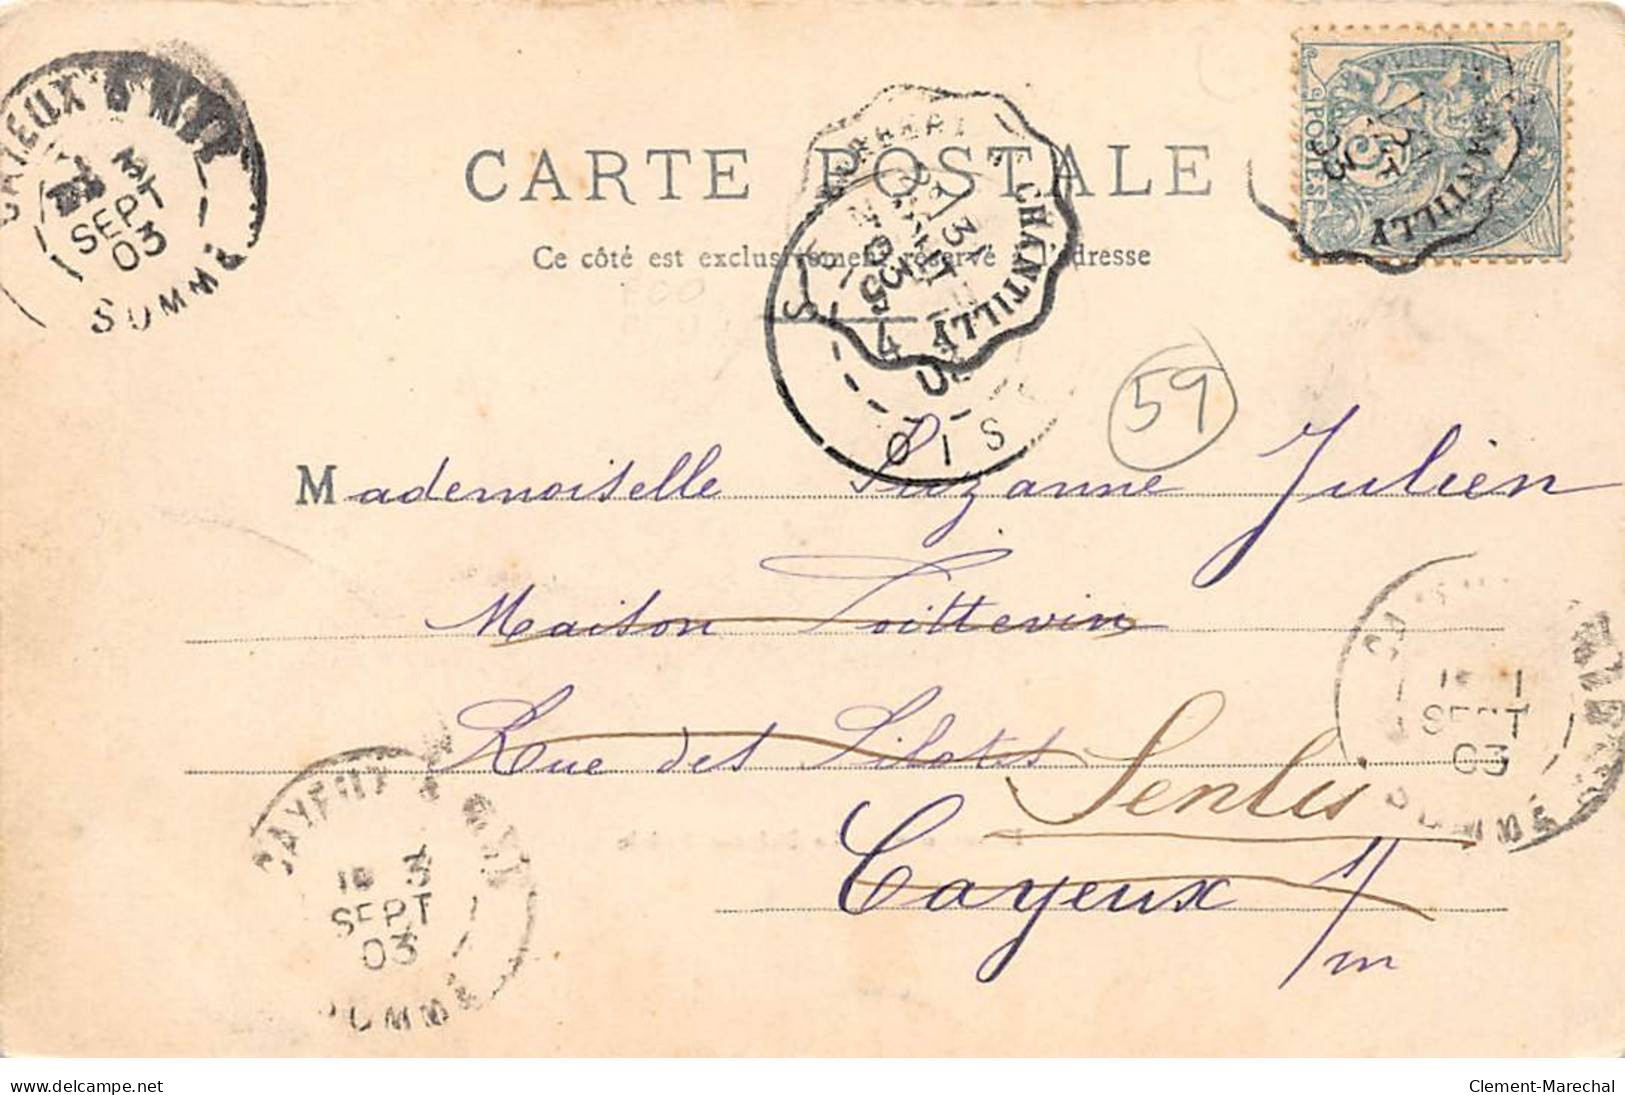 CARTE POSTALE
Ce côté est exclusivement réservé à l'adresse
POSTES
CHANTILLY
CHANTILLY
CAYEUX
3
SEPT
03
SOMME
OISE
59
Mademoiselle Suzanne Julien
Maison Poittevin
Rue des Pilots
Senlis
Cayeux s/m
SEPT
03
SOMME
CAYEUX
3
SEPT
03
SOMME
www.delcampe.net
Clement-Marechal